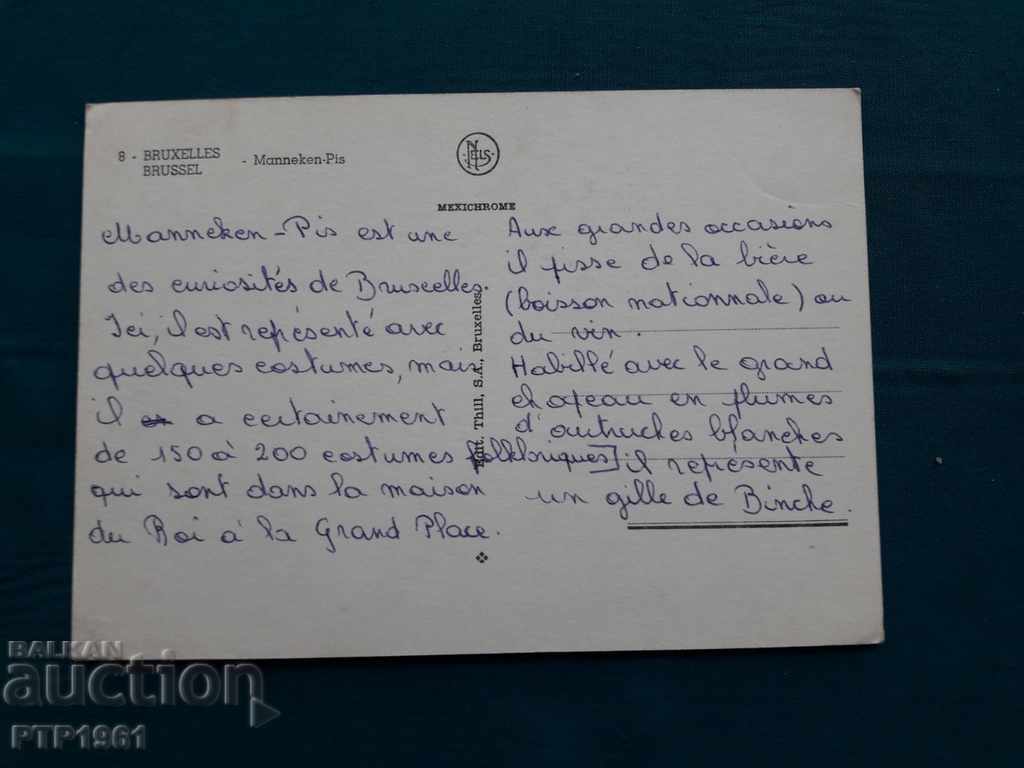 8 - BRUXELLES
BRUSSEL
- Manneken-Pis
NELS
MEXICHROME
Manneken-Pis est une
des curiosités de Bruxelles.
Ici, il est représenté avec
quelques costumes, mais
il a certainement
de 150 à 200 costumes folkloriques
qui sont dans la maison
du Roi à la Grand Place.
Edit. Thill, S.A., Bruxelles
Aux grandes occasions
il pisse de la bière
(boisson nationnale) ou
du vin.
Habillé avec le grand
chapeau en plumes
d'autruches blanches
il représente
un gille de Binche.
BALKAN
auction
PTP1961